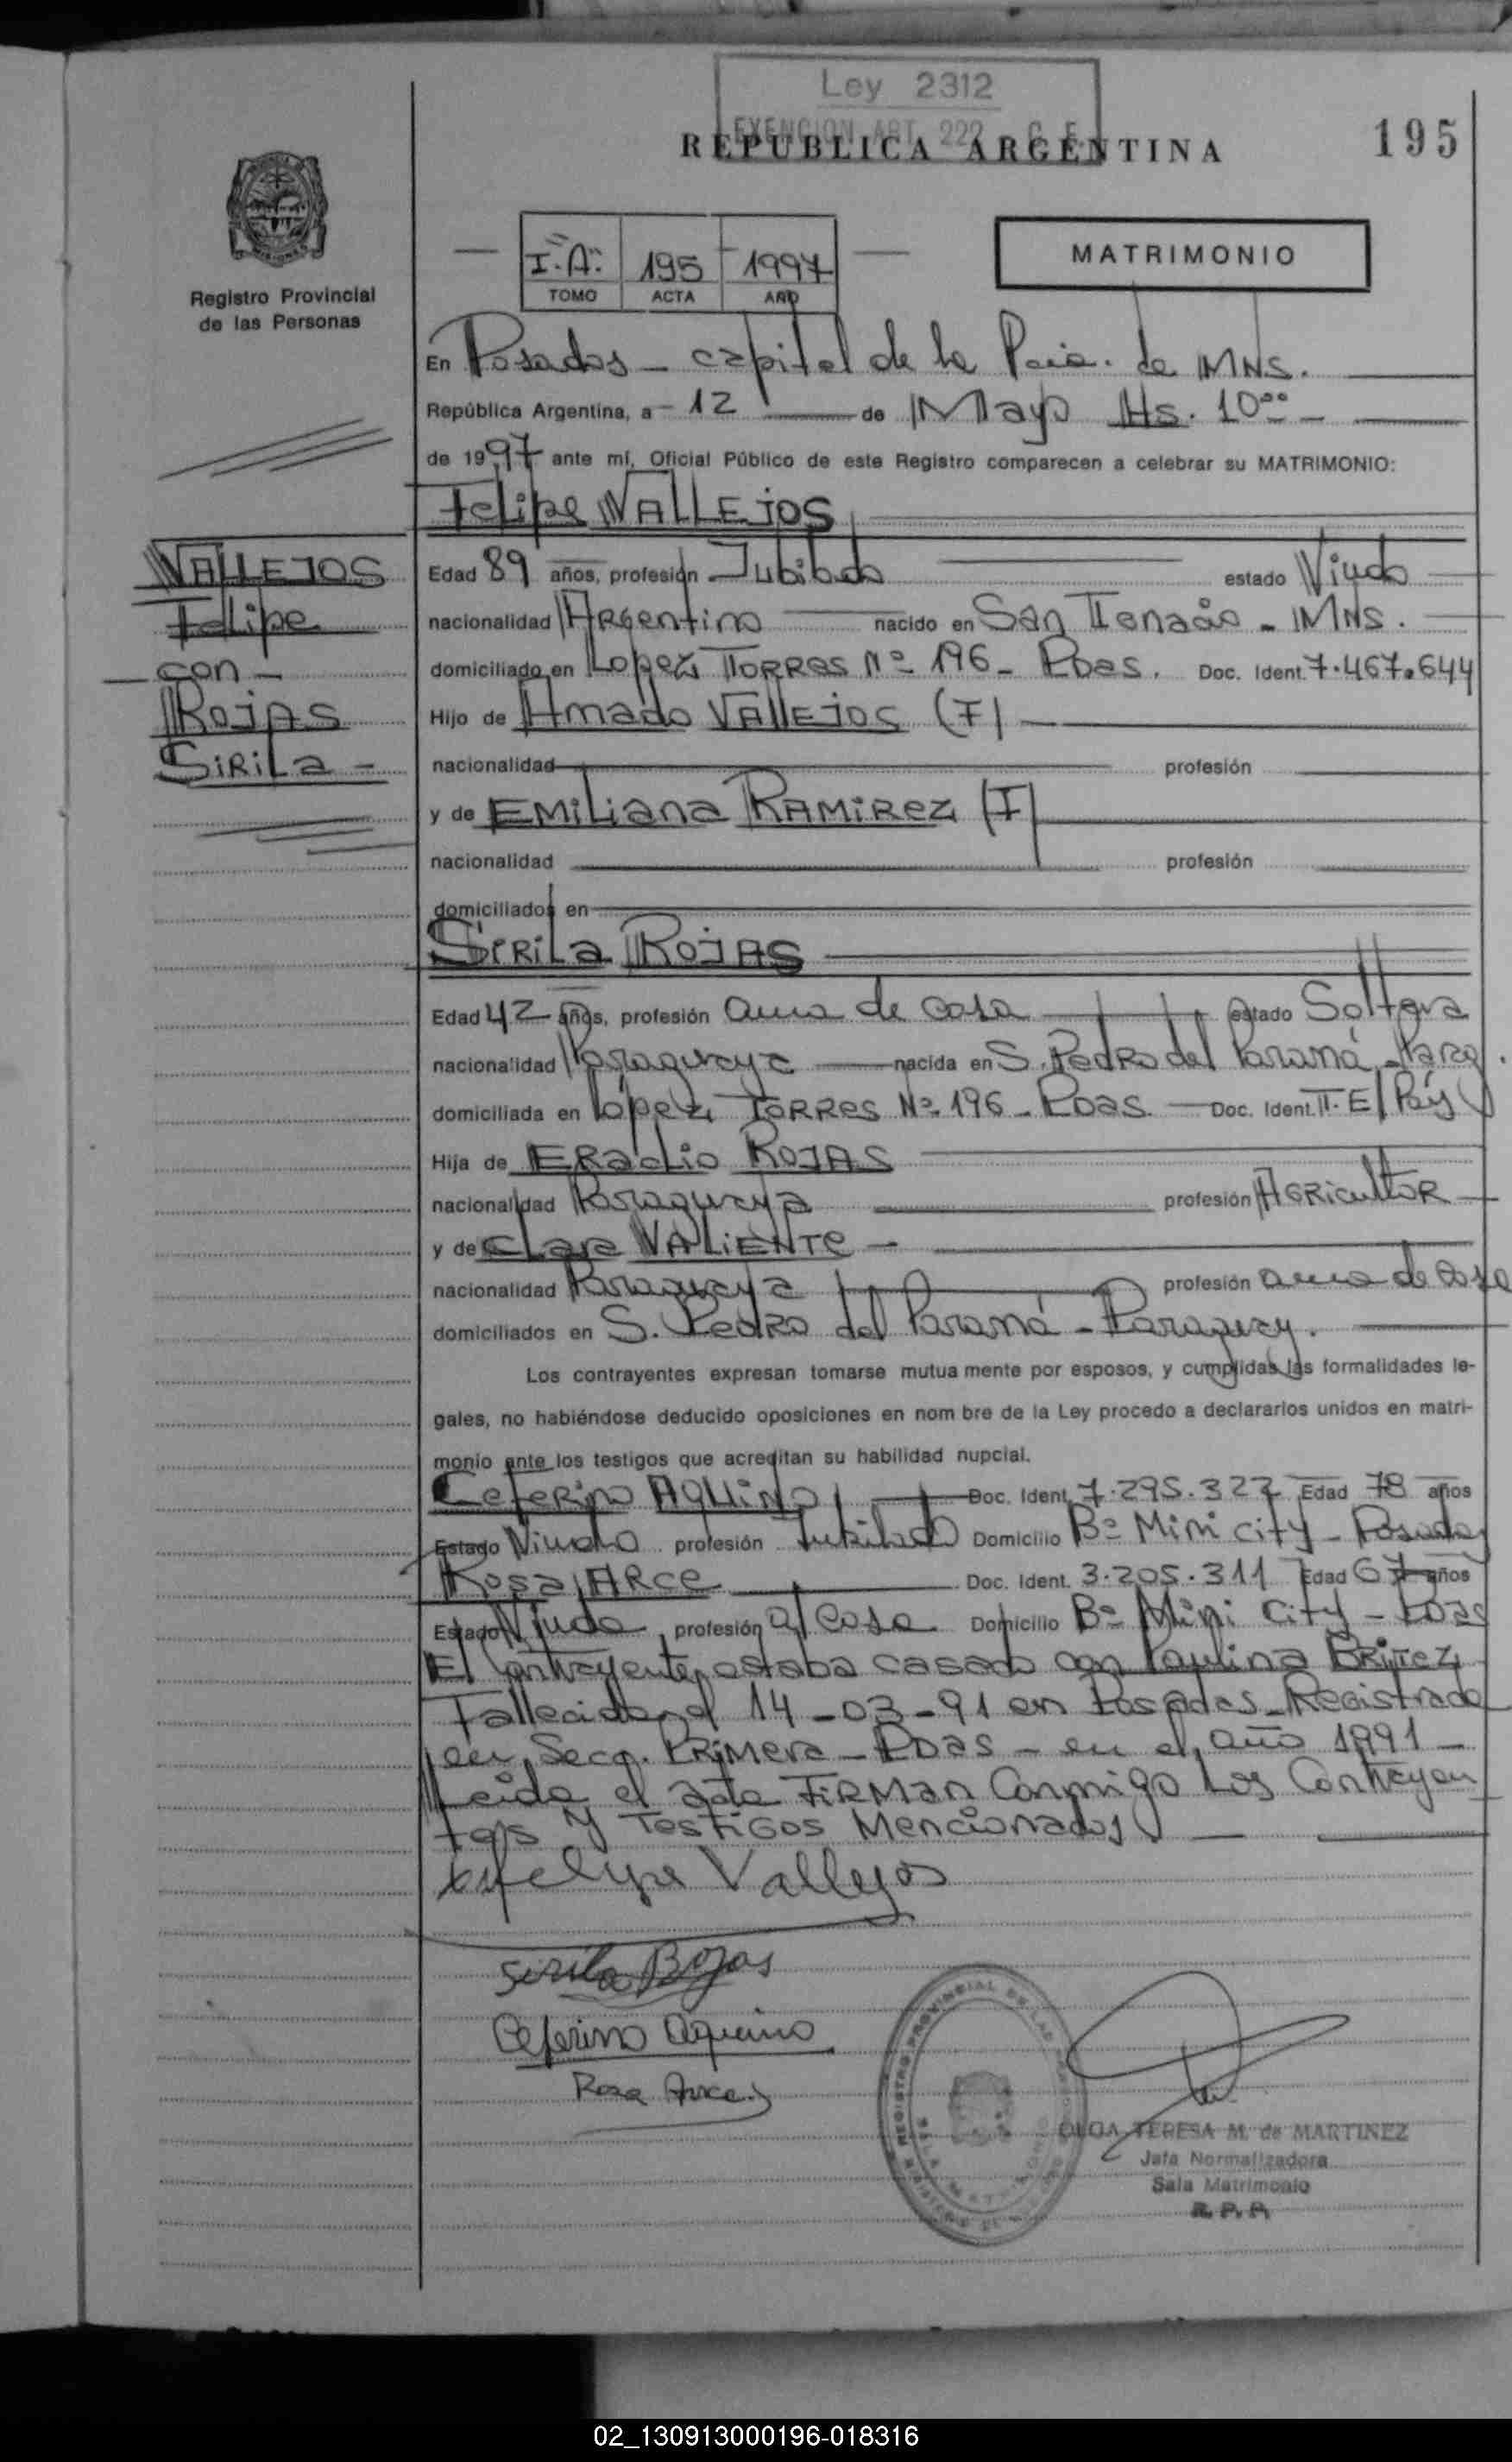 Ley 2312
EXENCION ART. 222 C. F.
REPUBLICA ARGENTINA
195
Registro Provincial
de las Personas
"I.A." 195 1997
TOMO ACTA AÑO
MATRIMONIO
En Posadas - capital de la Pcia. de MNS.
República Argentina, a - 12 de Mayo Hs. 10⁰⁰ -
de 1997 ante mí, Oficial Público de este Registro comparecen a celebrar su MATRIMONIO:
Felipe VALLEJOS
VALLEJOS
Felipe
- con -
ROJAS
SIRILa -
Edad 89 años, profesión Jubilado estado Viudo
nacionalidad Argentino nacido en San Ignacio - MNS.
domiciliado en Lopez Torres Nº 196 - Pdas. Doc. Ident. 7.467.644
Hijo de Amado VALLEJOS (F)
nacionalidad profesión
y de EMiLiana RAMIREZ (F)
nacionalidad profesión
domiciliados en
SIRILa ROJAS
Edad 42 años, profesión ama de casa estado Soltera
nacionalidad Paraguaya nacida en S. Pedro del Paraná - Parag.
domiciliada en López Torres Nº 196 - Pdas. Doc. Ident. T.E/País
Hija de ERadio ROJAS
nacionalidad Paraguaya profesión Agricultor
y de Clara VALIENTE -
nacionalidad Paraguaya profesión ama de casa
domiciliados en S. Pedro del Paraná - Paraguay.
Los contrayentes expresan tomarse mutua mente por esposos, y cumplidas las formalidades le-
gales, no habiéndose deducido oposiciones en nom bre de la Ley procedo a declararlos unidos en matri-
monio ante los testigos que acreditan su habilidad nupcial.
Ceferino AQUINO Doc. Ident. 7.295.322 Edad 78 años
Estado Viudo profesión Jubilado Domicilio Bº Mini City - Posadas
Rosa ARCE Doc. Ident. 3.205.311 Edad 67 años
Estado Viuda profesión a/ casa Domicilio Bº Mini City - Pdas
El contrayente, estaba casado con Paulina BRITEZ
Fallecida el 14-03-91 en Posadas - Registrada
en Secc. Primera - Pdas - en el año 1991 -
Leida el acta FIRMan Conmigo Los Contrayen
tes y Testigos Mencionados
Felipe Vallejos
Serila Rojas
Ceferino Aquino
Rosa Arce
OLGA TERESA M. de MARTINEZ
Jefa Normalizadora
Sala Matrimonio
R. P. P.
02_130913000196-018316